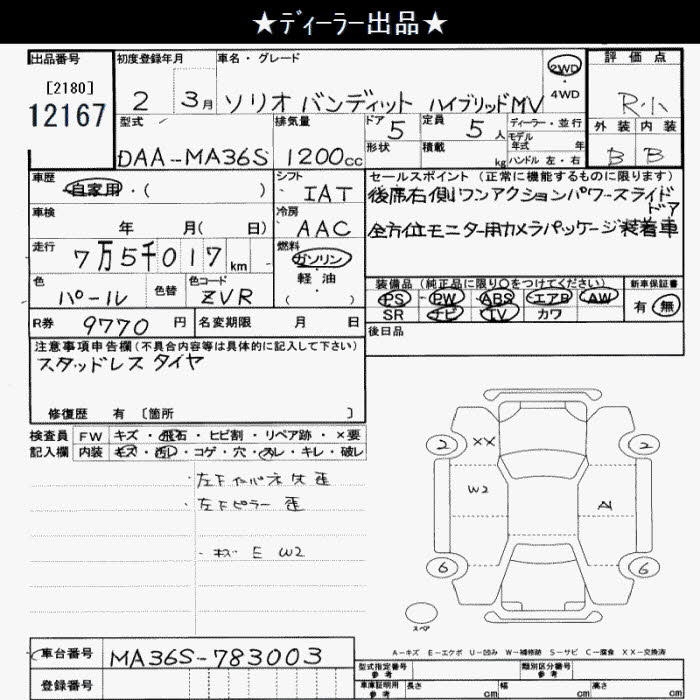 ★ディーラー出品★
出品番号
[2180]
12167
初度登録年月
2 3月
車名・グレード
ソリオ バンディット ハイブリッドMV
2WD
・
4WD
評価点
R小
外装 内装
B B
型式
DAA-MA36S
排気量
1200cc
ドア 5
形状
定員 5人
積載 kg
ディーラー・並行
モデル年式 年
ハンドル 左・右
車歴
自家用・( )
シフト
IAT
セールスポイント(正常に機能するものに限ります)
後席右側ワンアクションパワースライドドア
全方位モニター用カメラパッケージ装着車
車検
年 月( 日)
冷房
AAC
走行
7万5千017km
燃料
ガソリン
・
軽油
( )
色
パール
色替
色コード
ZVR
装備品(純正品に限り○をつけてください)
PS・PW・ABS・エアB・AW
SR ナビ・TV・カワ
新車保証書
有・無
R券 9770円
名変期限 月 日
後日品
注意事項申告欄(不具合内容等は具体的に記入して下さい)
スタッドレスタイヤ
修復歴 有〔箇所 〕
検査員
記入欄
FW キズ・飛石・ヒビ割・リペア跡・×要
内装 キズ・汚レ・コゲ・穴・スレ・キレ・破レ
・左下インパネ欠 歪
・左下ピラー 歪
・キズ E W2
2 XX 2
W2 A1
6 6
スペア
A-キズ E-エクボ U-凹み W-補修跡 S-サビ C-腐食 XX-交換済
車台番号 MA36S-783003
登録番号
型式指定番号
参考
類別区分番号
参考
車庫証明用
参考
長さ cm 幅 cm 高さ cm